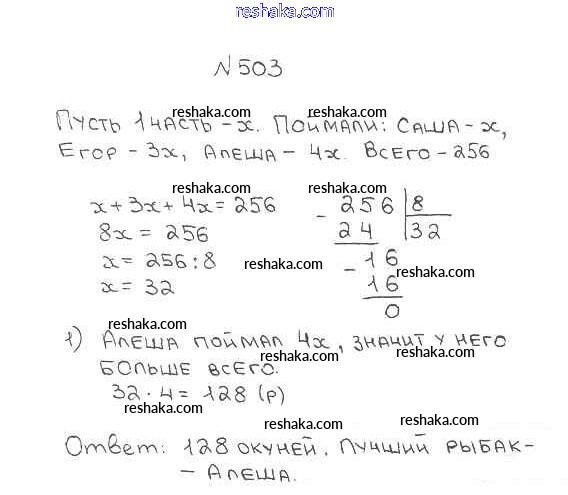 reshaka.com
N503
reshaka.com reshaka.com
Пусть 1 часть - x. Поймали: Саша - x,
Егор - 3x, Алеша - 4x. Всего - 256
reshaka.com reshaka.com
x + 3x + 4x = 256
8x = 256
x = 256 : 8
x = 32
- 256 | 8
24 | 32
reshaka.com
- 16
reshaka.com
16
0
reshaka.com
1) Алеша поймал 4x, значит у него
reshaka.com reshaka.com
больше всего.
32 · 4 = 128 (р)
reshaka.com reshaka.com
Ответ: 128 окуней. Лучший рыбак -
reshaka.com reshaka.com
- Алеша.